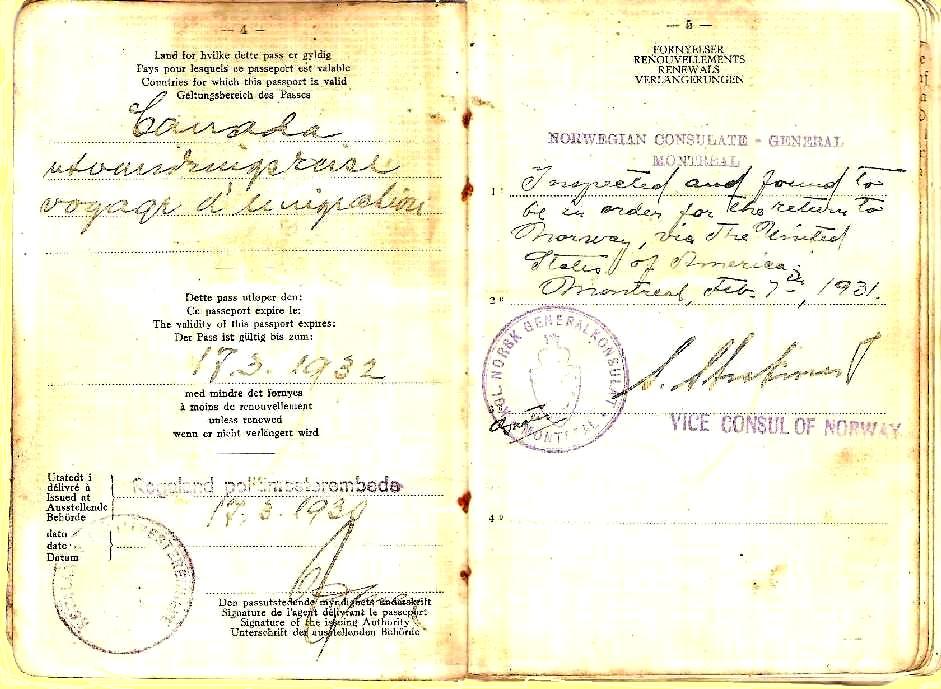 — 4 —
Land for hvilke dette pass er gyldig
Pays pour lesquels ce passeport est valable
Countries for which this passport is valid
Geltungsbereich des Passes
Canada
utvandringsreise
voyage d'emigration
Dette pass utløper den:
Ce passeport expire le:
The validity of this passport expires:
Der Pass ist gültig bis zum:
17.3.1932
med mindre det fornyes
à moins de renouvellement
unless renewed
wenn er nicht verlängert wird
Utstedt i
délivré à
Issued at
Ausstellende
Behörde
Rogaland politimesterembede
17.3.1930
dato
date
Datum
Den passutstedende myndighets underskrift
Signature de l'agent délivrant le passeport
Signature of the issuing Authority
Unterschrift der ausstellenden Behörde
— 5 —
FORNYELSER
RENOUVELLEMENTS
RENEWALS
VERLÄNGERUNGEN
NORWEGIAN CONSULATE - GENERAL
MONTREAL
1°
Inspected and found to
be in order for the return to
Norway, via the United
States of America.
2°
Montreal, Feb. 7th, 1931.
KGL NORSK GENERALKONSULAT
MONTREAL
VICE CONSUL OF NORWAY
4°